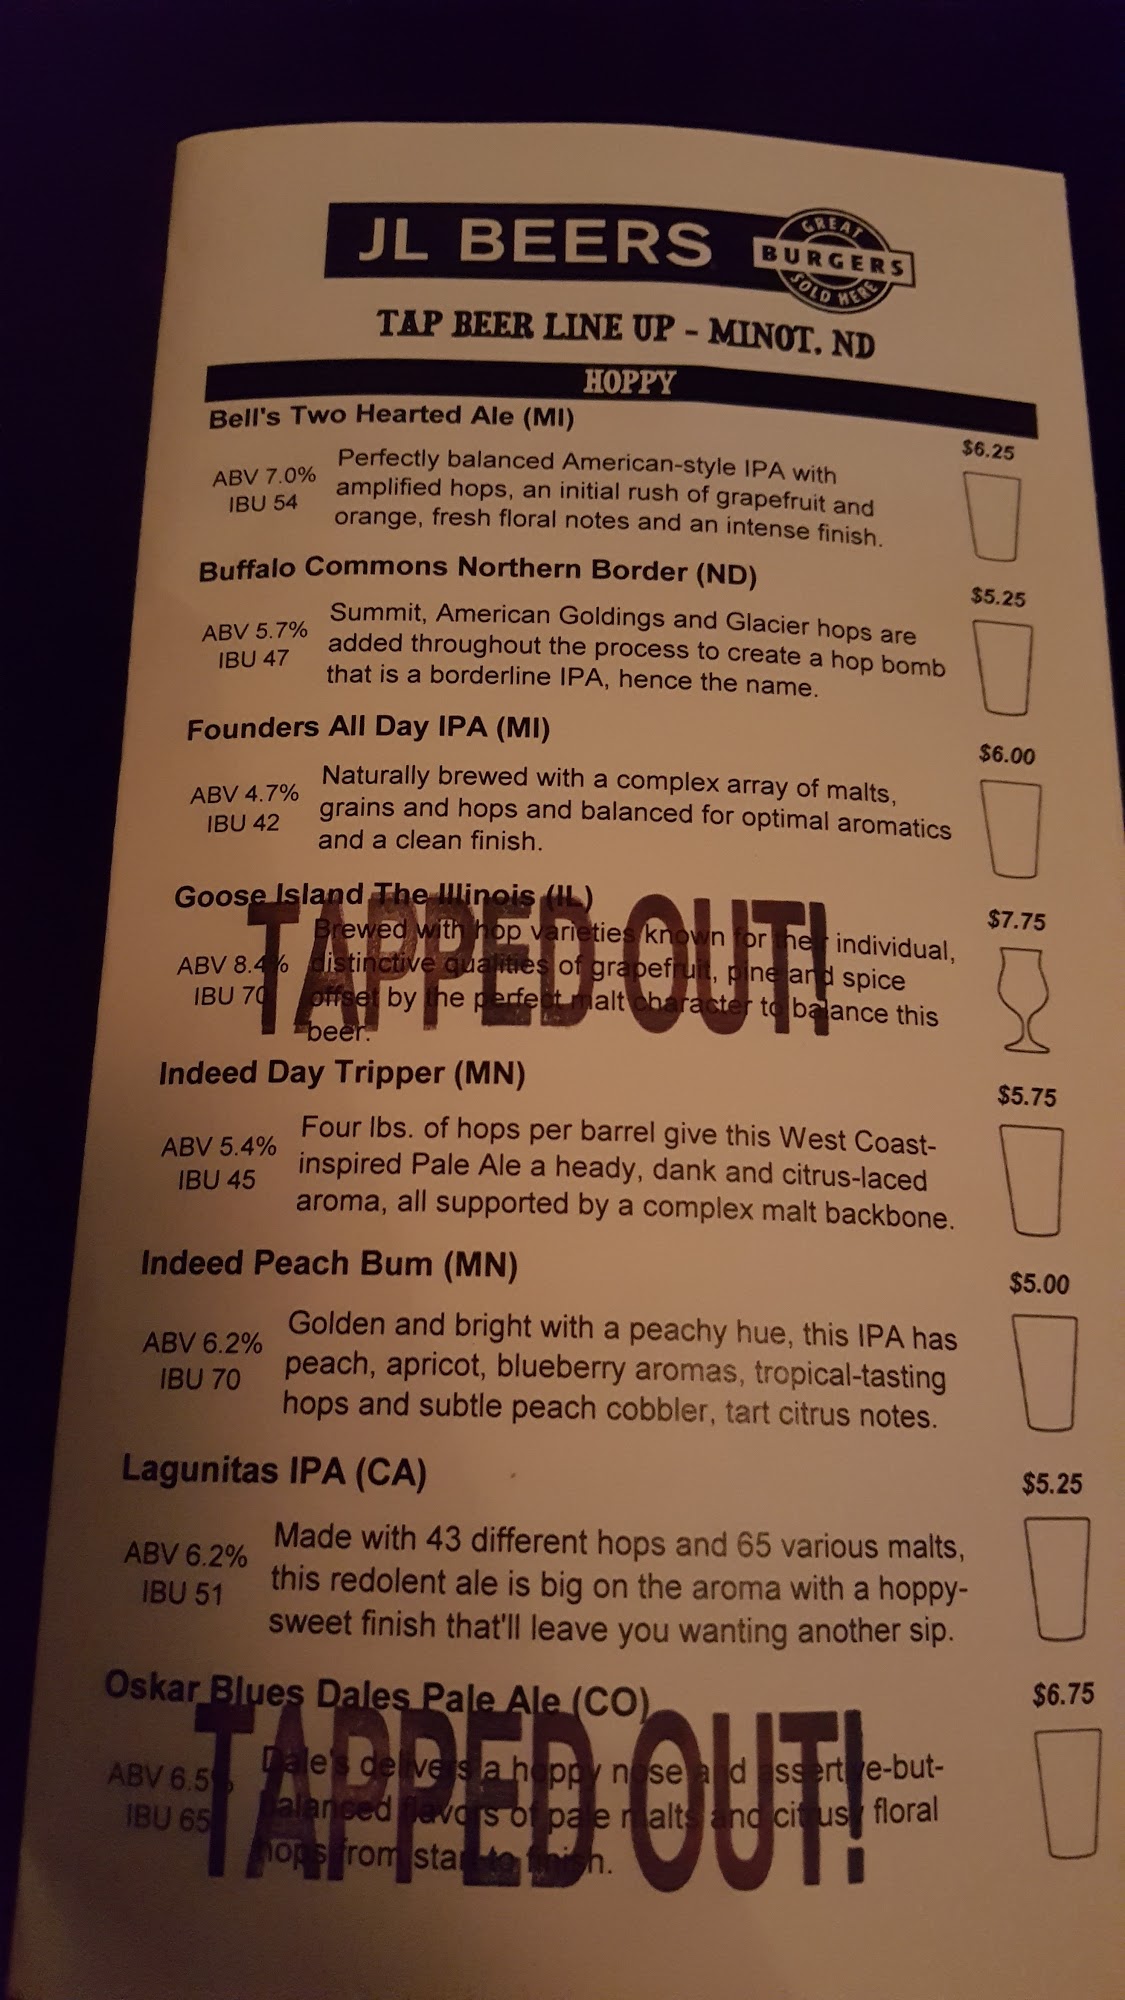 JL BEERS
GREAT
BURGERS
SOLD HERE
TAP BEER LINE UP - MINOT, ND
HOPPY
Bell's Two Hearted Ale (MI)
$6.25
ABV 7.0%
IBU 54
Perfectly balanced American-style IPA with
amplified hops, an initial rush of grapefruit and
orange, fresh floral notes and an intense finish.
Buffalo Commons Northern Border (ND)
$5.25
ABV 5.7%
IBU 47
Summit, American Goldings and Glacier hops are
added throughout the process to create a hop bomb
that is a borderline IPA, hence the name.
Founders All Day IPA (MI)
$6.00
ABV 4.7%
IBU 42
Naturally brewed with a complex array of malts,
grains and hops and balanced for optimal aromatics
and a clean finish.
Goose Island The Illinois (IL)
$7.75
ABV 8.4%
IBU 70
Brewed with hop varieties known for their individual,
distinctive qualities of grapefruit, pine and spice
offset by the perfect malt character to balance this
beer.
TAPPED OUT!
Indeed Day Tripper (MN)
$5.75
ABV 5.4%
IBU 45
Four lbs. of hops per barrel give this West Coast-
inspired Pale Ale a heady, dank and citrus-laced
aroma, all supported by a complex malt backbone.
Indeed Peach Bum (MN)
$5.00
ABV 6.2%
IBU 70
Golden and bright with a peachy hue, this IPA has
peach, apricot, blueberry aromas, tropical-tasting
hops and subtle peach cobbler, tart citrus notes.
Lagunitas IPA (CA)
$5.25
ABV 6.2%
IBU 51
Made with 43 different hops and 65 various malts,
this redolent ale is big on the aroma with a hoppy-
sweet finish that'll leave you wanting another sip.
Oskar Blues Dales Pale Ale (CO)
$6.75
ABV 6.5%
IBU 65
Dale's delivers a hoppy nose and assertive-but-
balanced flavors of pale malts and citrusy floral
hops from start to finish.
TAPPED OUT!